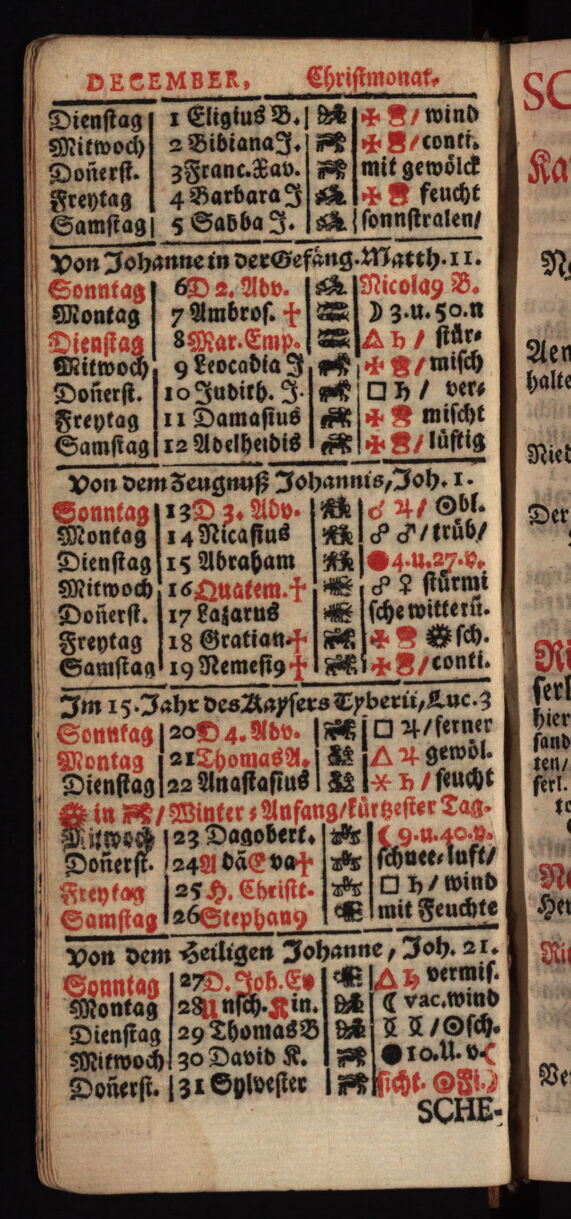 DECEMBER, Christmonat.
Dienstag 1 Eligius B. ✠ / wind
Mitwoch 2 Bibiana J. ✠ / conti.
Doñerst. 3 Franc. Xav. mit gewölck
Freytag 4 Barbara J ✠ feucht
Samstag 5 Sabba J. sonnstralen/
Von Johanne in der Gefäng. Matth. 11.
Sonntag 6 D 2. Adv. Nicola9 B.
Montag 7 Ambros. † ☽ 3. u. 50. n
Dienstag 8 Mar. Emp. △ ♄ / stür⸗
Mitwoch 9 Leocadia J ✠ / misch
Doñerst. 10 Judith. J. □ ♄ / ver⸗
Freytag 11 Damasius ✠ mischt
Samstag 12 Adelheidis ✠ / lüftig
Von dem Zeugnuß Johannis, Joh. 1.
Sonntag 13 D 3. Adv. ☌ ♃ / ☉bl.
Montag 14 Nicasius ☍ ♂ / trüb/
Dienstag 15 Abraham ● 4. u. 27. v.
Mitwoch 16 Quatem. † ☍ ♀ stürmi
Doñerst. 17 Lazarus sche witterũ.
Freytag 18 Gratian † ✠ sch.
Samstag 19 Nemesi9 † ✠ / conti.
Im 15. Jahr des Kaysers Tyberii, Luc. 3
Sonntag 20 D 4. Adv. □ ♃ / ferner
Montag 21 Thomas A. △ ♃ gewöl.
Dienstag 22 Anastasius ⚹ ♄ / feucht
in / Winter⸗Anfang/ kürtzester Tag.
Mitwoch 23 Dagobert. ☾ 9. u. 40. v.
Doñerst. 24 Adã Eva † schnee⸗luft/
Freytag 25 H. Christt. □ ♄ / wind
Samstag 26 Stephan9 mit Feuchte
Von dem Heiligen Johanne, Joh. 21.
Sonntag 27 D. Joh. Ev △ ♄ vermis.
Montag 28 Unsch. Kin. ☾ vac. wind
Dienstag 29 Thomas B / ☉sch.
Mitwoch 30 David K. ● 10. U. v.
Doñerst. 31 Sylvester sicht. ☉ Fi.
SCHE-
SC
Ka
Aen
halte
Nied
Der
Ri
serl
hier
sand
ten/
serl.